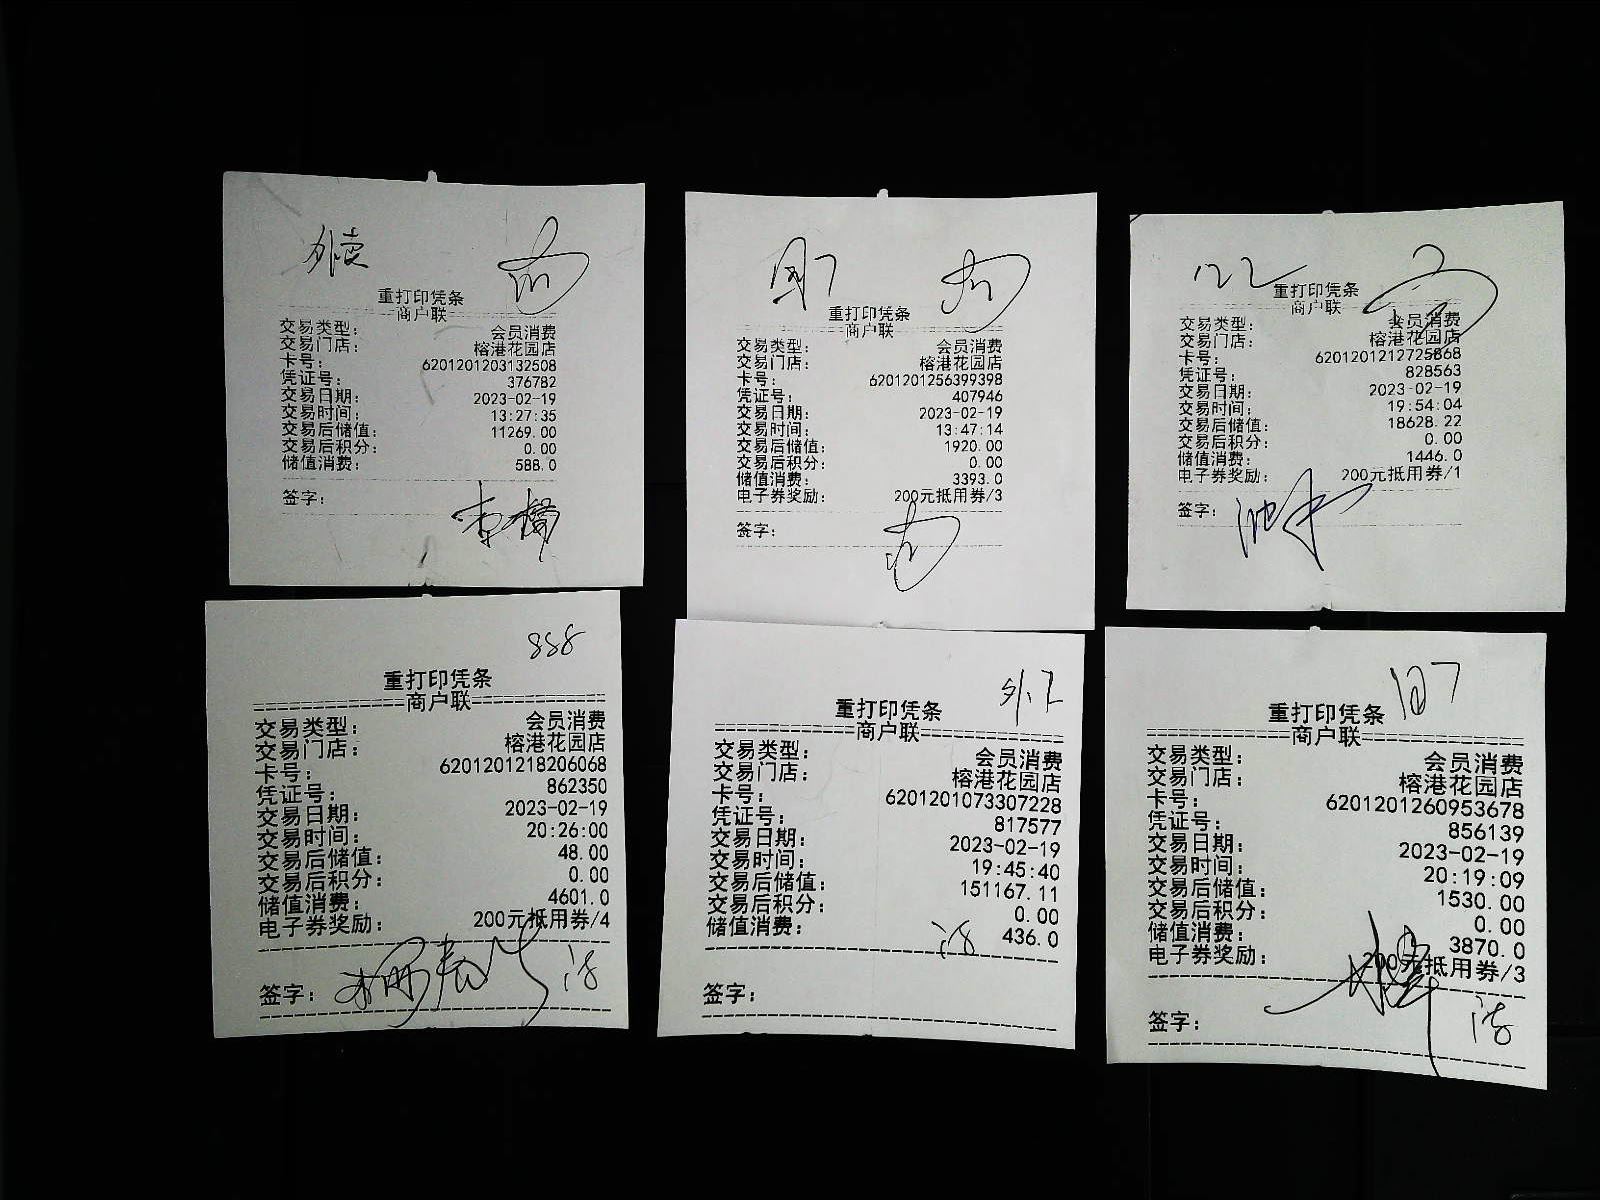 重打印凭条
商户联
交易类型： 会员消费
交易门店： 榕港花园店
卡号： 6201201203132508
凭证号： 376782
交易日期： 2023-02-19
交易时间： 13:27:35
交易后储值： 11269.00
交易后积分： 0.00
储值消费： 588.0
签字：
重打印凭条
商户联
交易类型： 会员消费
交易门店： 榕港花园店
卡号： 6201201256399398
凭证号： 407946
交易日期： 2023-02-19
交易时间： 13:47:14
交易后储值： 1920.00
交易后积分： 0.00
储值消费： 3393.0
电子券奖励： 200元抵用券/3
签字：
重打印凭条
商户联
交易类型： 会员消费
交易门店： 榕港花园店
卡号： 6201201212725868
凭证号： 828563
交易日期： 2023-02-19
交易时间： 19:54:04
交易后储值： 18628.22
交易后积分： 0.00
储值消费： 1446.0
电子券奖励： 200元抵用券/1
签字：
888
重打印凭条
商户联
交易类型： 会员消费
交易门店： 榕港花园店
卡号： 6201201218206068
凭证号： 862350
交易日期： 2023-02-19
交易时间： 20:26:00
交易后储值： 48.00
交易后积分： 0.00
储值消费： 4601.0
电子券奖励： 200元抵用券/4
签字：
重打印凭条
商户联
交易类型： 会员消费
交易门店： 榕港花园店
卡号： 6201201073307228
凭证号： 817577
交易日期： 2023-02-19
交易时间： 19:45:40
交易后储值： 151167.11
交易后积分： 0.00
储值消费： 436.0
签字：
重打印凭条
商户联
交易类型： 会员消费
交易门店： 榕港花园店
卡号： 6201201260953678
凭证号： 856139
交易日期： 2023-02-19
交易时间： 20:19:09
交易后储值： 1530.00
交易后积分： 0.00
储值消费： 3870.0
电子券奖励： 200元抵用券/3
签字：